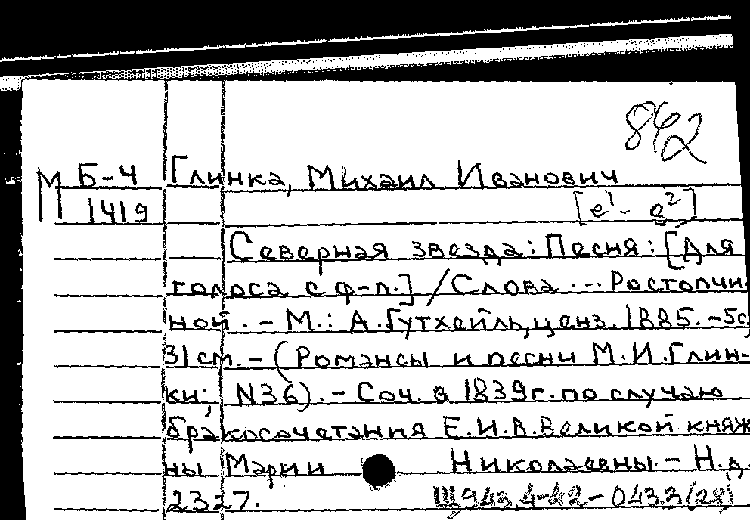 862
М Б-4 Глинка, Михаил Иванович
1419 [e¹ - e²]
Северная звезда: Песня: [Для
голоса с ф-п.] / Слова ... Ростопчи-
ной. - М.: А. Гутхейль, ценз. 1885. - 5с
31 см. - (Романсы и песни М.И. Глин-
ки; N36). - Соч. в 1839 г. по случаю
бракосочетания Е.И.В. Великой княж
ны Марии Николаевны - Н.д.
2327.
Щ943.4-42-0433(28)